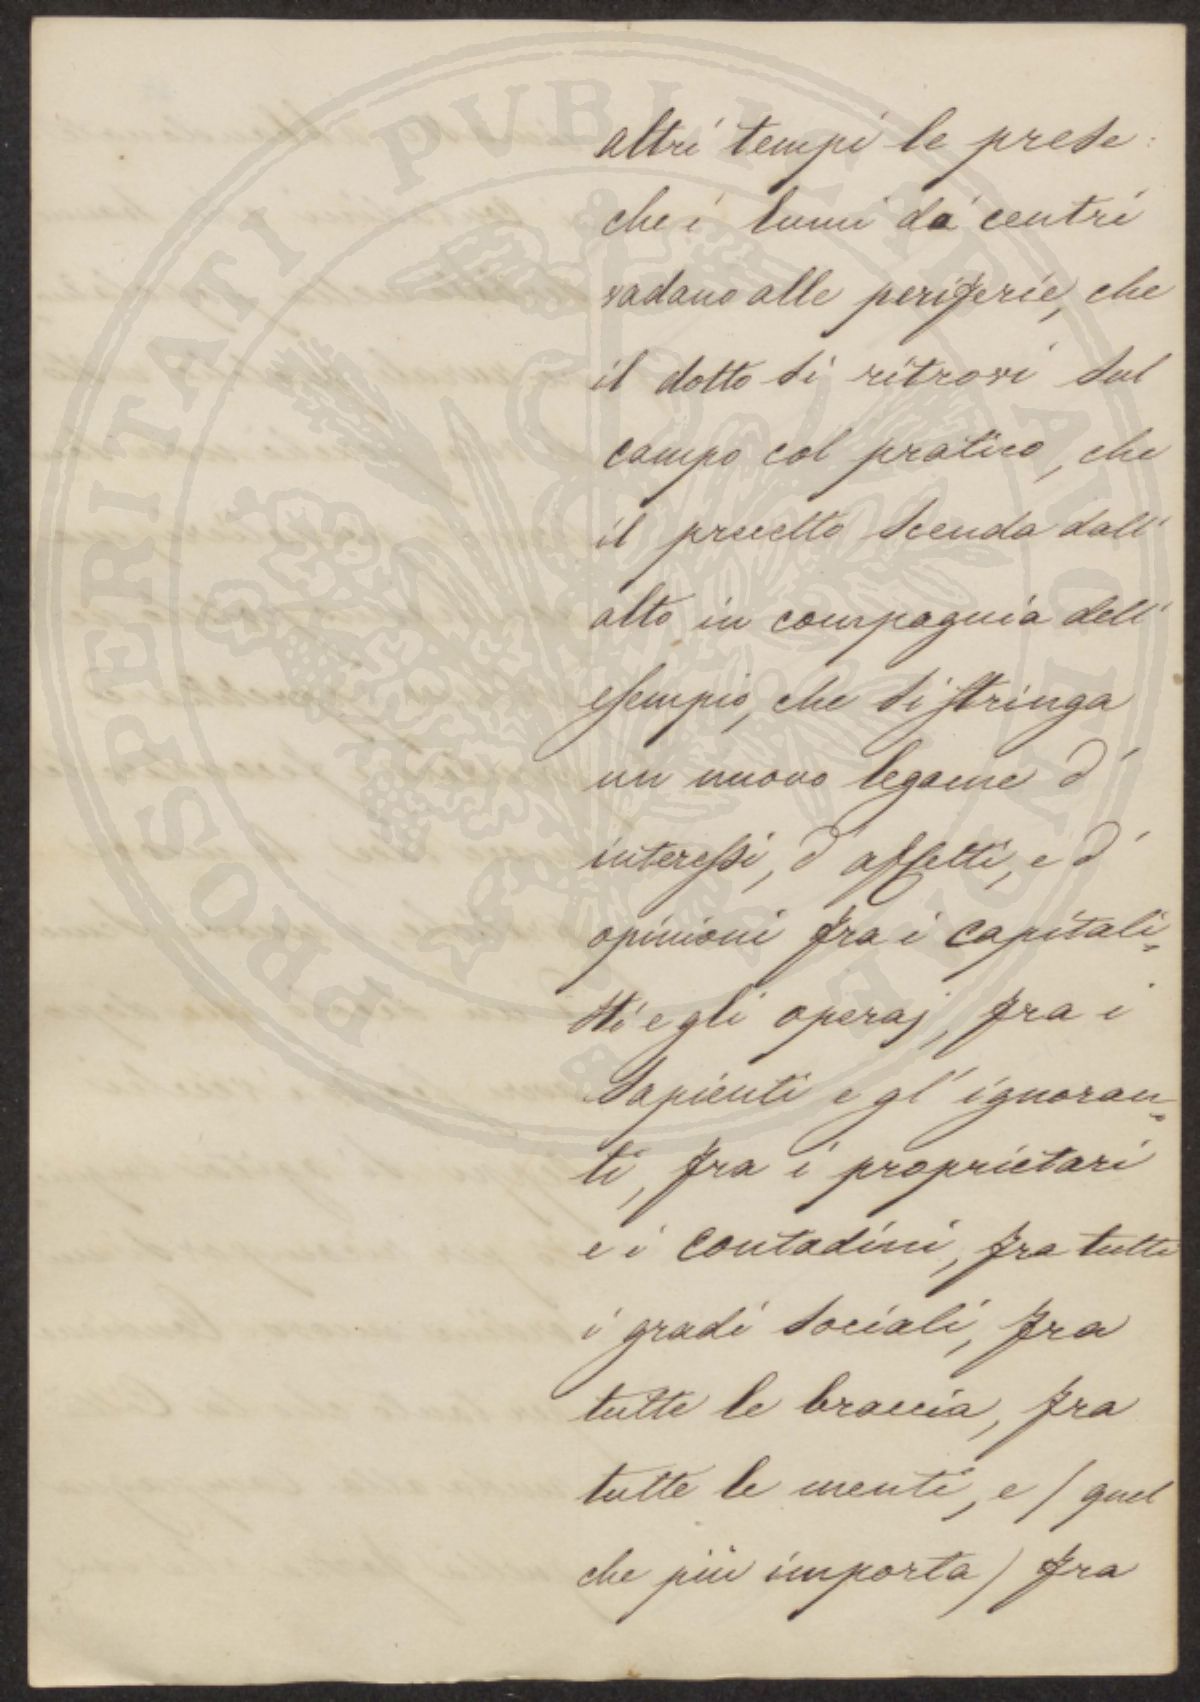 altri tempi le prese:
che i lumi da' centri
vadano alle periferie, che
il dotto si ritrovi sul
campo col pratico, che
il precetto scenda dall'
alto in compagnia dell'
esempio, che si stringa
un nuovo legame d'
interessi, d'affetti, e d'
opinioni fra i capitali=
sti e gli operaj, fra i
sapienti e gl'ignoran=
ti, fra i proprietari
e i contadini, fra tutti
i gradi sociali, fra
tutte le braccia, fra
tutte le menti, e (quel
che più importa) fra
PROSPERITATI PUBLICAE AUGENDAE